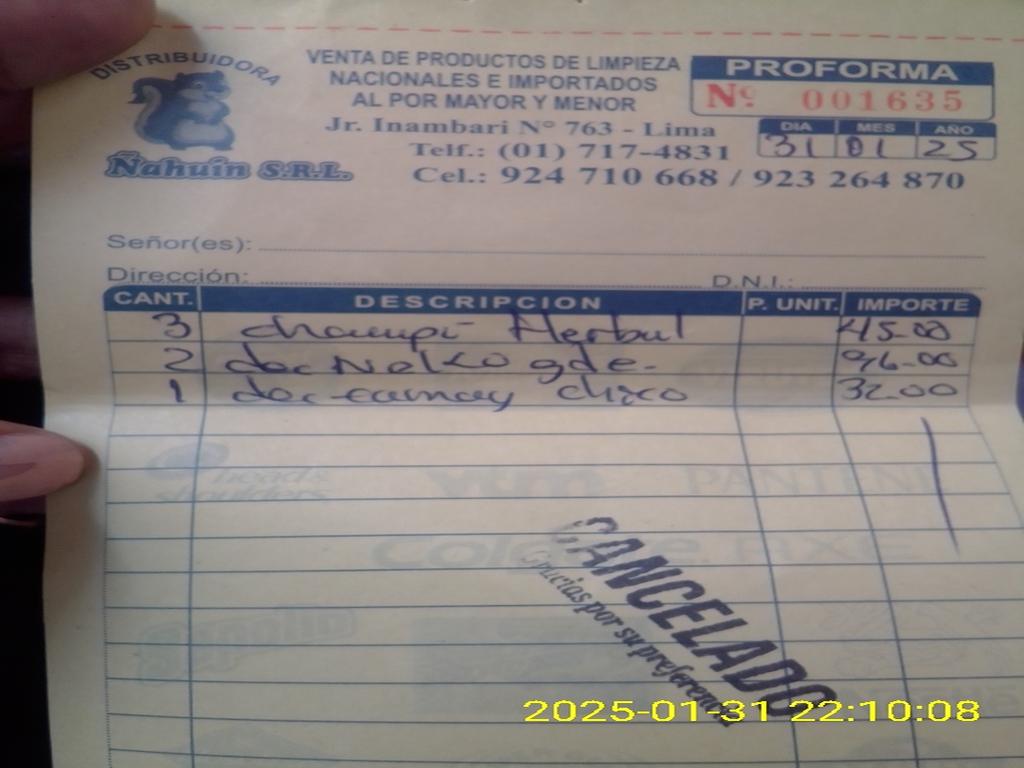 DISTRIBUIDORA
Ñahuín S.R.L.
VENTA DE PRODUCTOS DE LIMPIEZA
NACIONALES E IMPORTADOS
AL POR MAYOR Y MENOR
Jr. Inambari N° 763 - Lima
Telf.: (01) 717-4831
Cel.: 924 710 668 / 923 264 870
PROFORMA
Nº 001635
DIA MES AÑO
31 01 25
Señor(es):
Dirección: D.N.I.:
CANT. DESCRIPCION P. UNIT. IMPORTE
3 champú Herbal 45.00
2 doc Nelko gde. 96.00
1 doc camay chico 32.00
head & shoulders
PANTENE
Colgate. AXE
Sapolio
CANCELADO
Gracias por su preferencia
2025-01-31 22:10:08